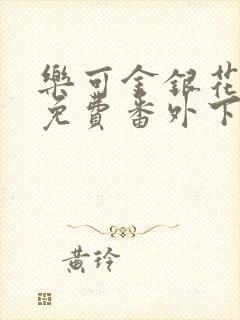 樂可金銀花
免費番外下
黃玲